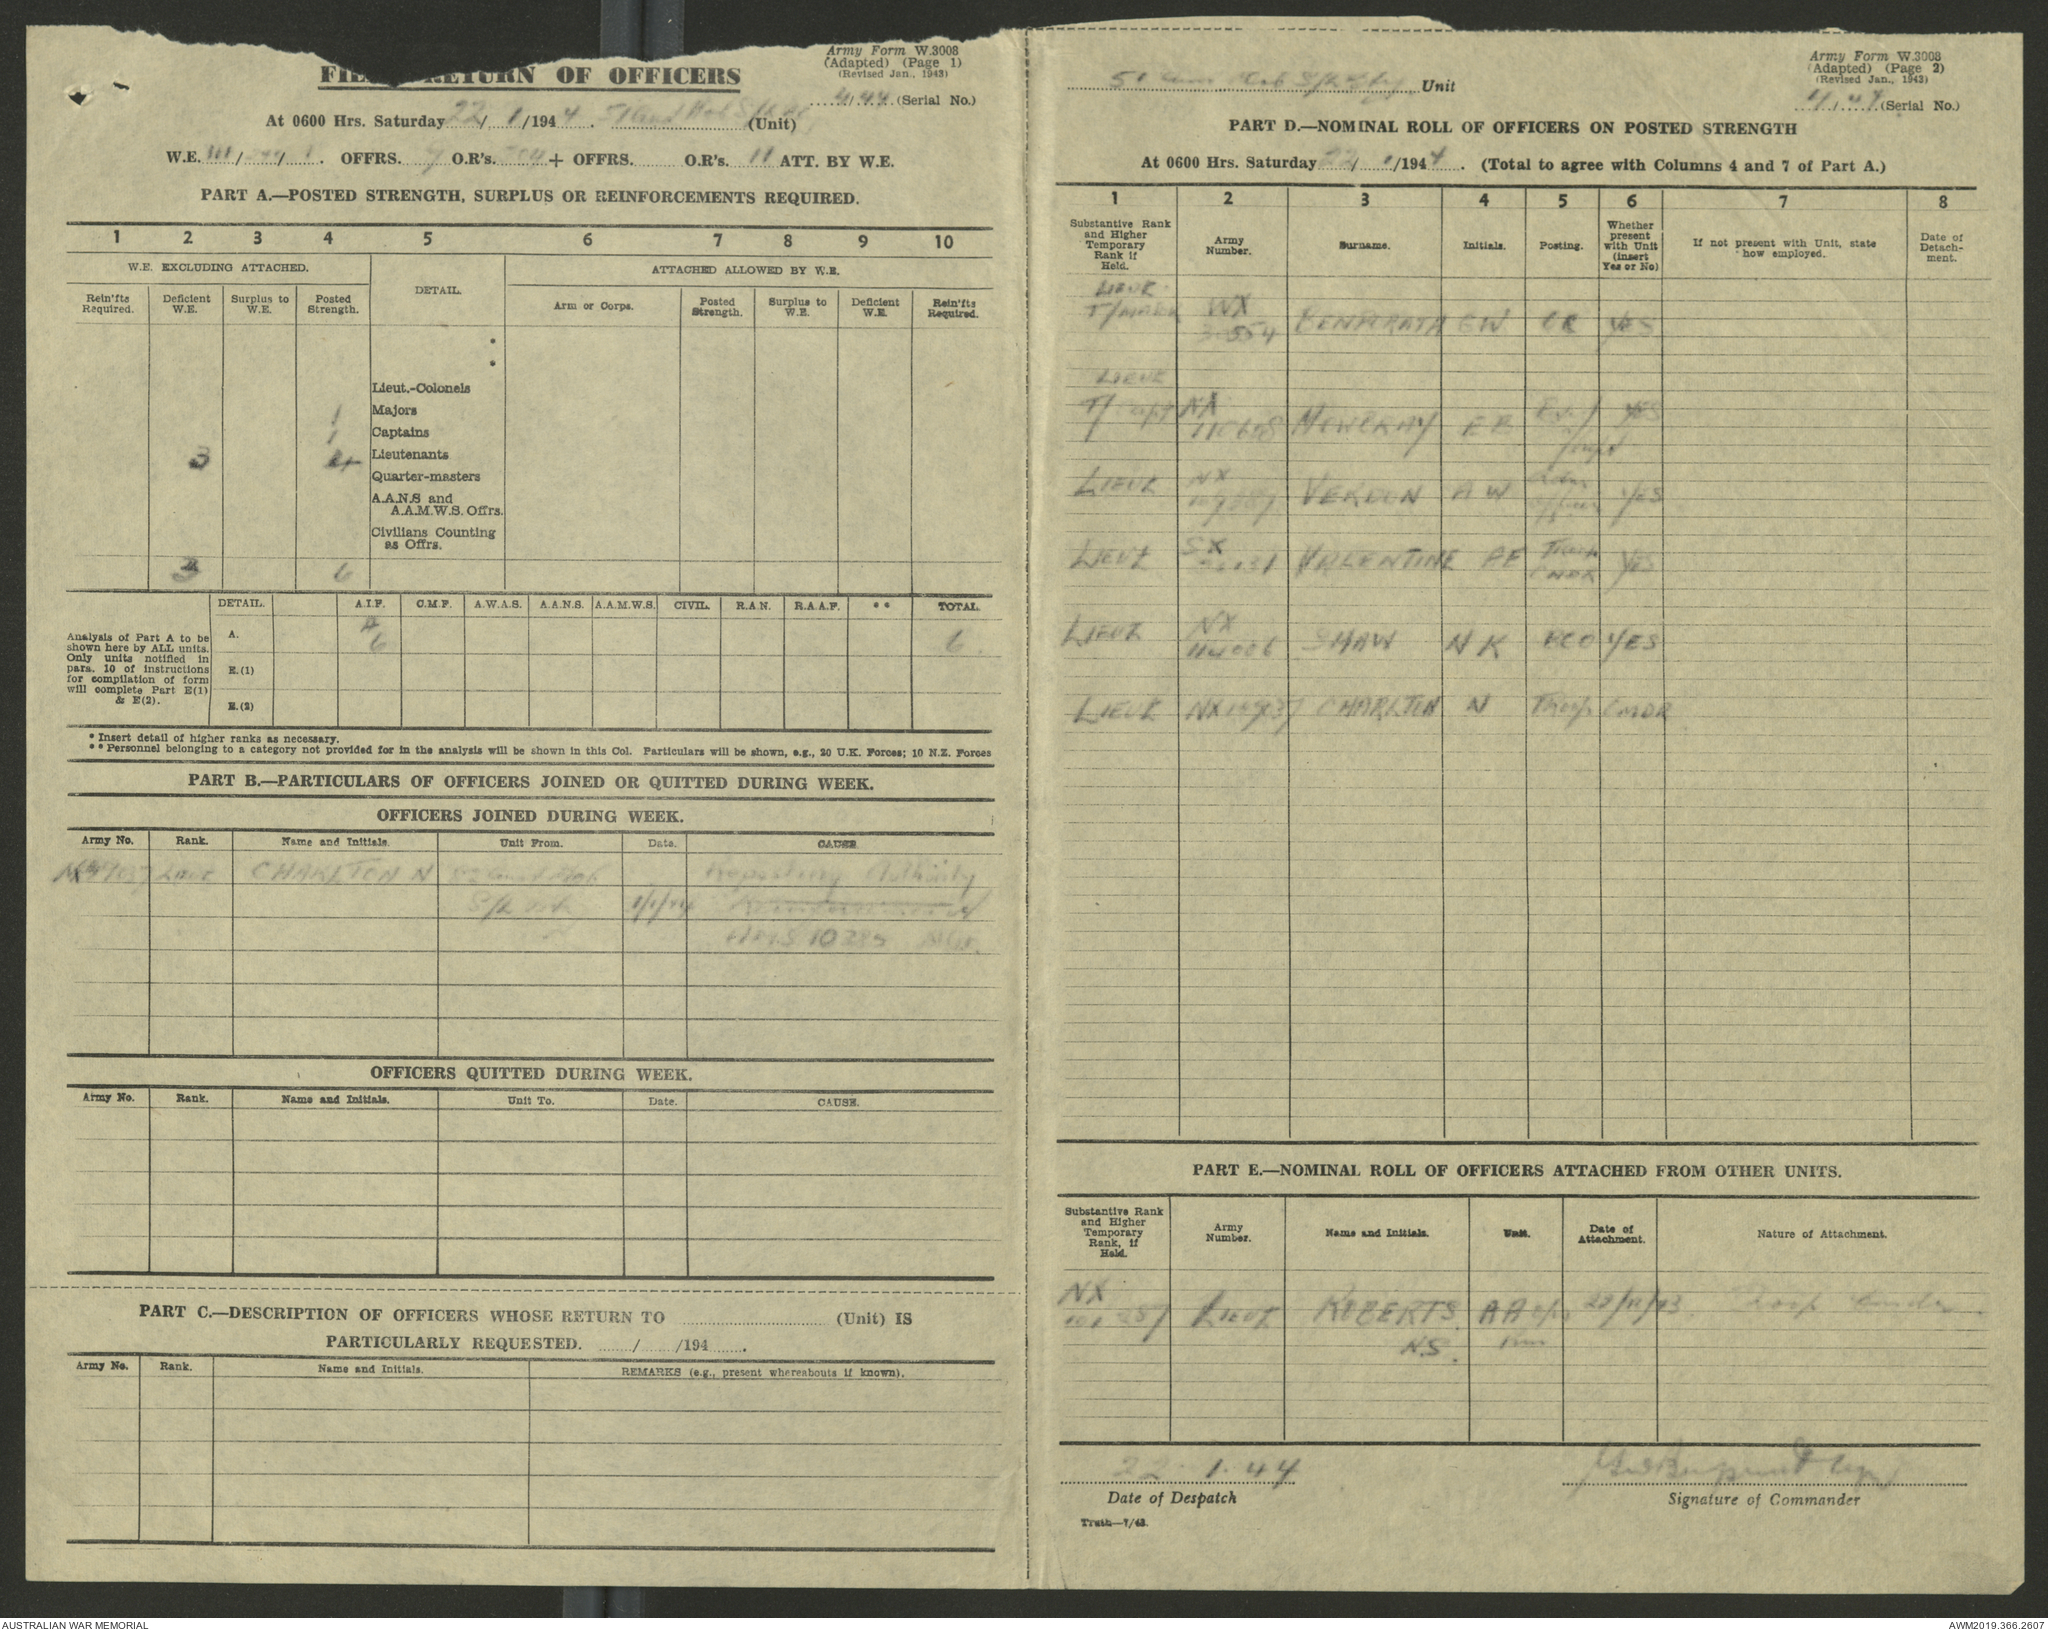 Army Form W.3008
(Adapted) (Page 1)
(Revised Jan., 1943)
RETURN OF OFFICERS
4/44 (Serial No.)
At 0600 Hrs. Saturday 22/1/1944. (Unit)
W.E. / / . OFFRS. O.R's. + OFFRS. O.R's. 11 ATT. BY W.E.
PART A.—POSTED STRENGTH, SURPLUS OR REINFORCEMENTS REQUIRED.
1 2 3 4 5 6 7 8 9 10
W.E. EXCLUDING ATTACHED. DETAIL. ATTACHED ALLOWED BY W.E.
Rein'fts Required. Deficient W.E. Surplus to W.E. Posted Strength. Arm or Corps. Posted Strength. Surplus to W.E. Deficient W.E. Rein'fts Required.
*
*
Lieut.-Colonels
1 Majors
1 Captains
3 4 Lieutenants
Quarter-masters
A.A.N.S and
A.A.M.W.S. Offrs.
Civilians Counting
as Offrs.
3 6
DETAIL. A.I.F. C.M.F. A.W.A.S. A.A.N.S. A.A.M.W.S. CIVIL. R.A.N. R.A.A.F. ** TOTAL.
Analysis of Part A to be
shown here by ALL units.
Only units notified in
para. 10 of instructions
for compilation of form
will complete Part E(1)
& E(2).
A. 6 6
E.(1)
E.(2)
* Insert detail of higher ranks as necessary.
** Personnel belonging to a category not provided for in the analysis will be shown in this Col. Particulars will be shown, e.g., 20 U.K. Forces; 10 N.Z. Forces
PART B.—PARTICULARS OF OFFICERS JOINED OR QUITTED DURING WEEK.
OFFICERS JOINED DURING WEEK.
Army No. Rank. Name and Initials. Unit From. Date. CAUSE.
LIEUT CHARLTON N Reposting Authority
S/L
10285
OFFICERS QUITTED DURING WEEK.
Army No. Rank. Name and Initials. Unit To. Date. CAUSE.
PART C.—DESCRIPTION OF OFFICERS WHOSE RETURN TO (Unit) IS
PARTICULARLY REQUESTED. / /194 .
Army No. Rank. Name and Initials. REMARKS (e.g., present whereabouts if known).
Army Form W.3008
(Adapted) (Page 2)
(Revised Jan., 1943)
51 Aust Mob S/L Bty Unit
4/44 (Serial No.)
PART D.—NOMINAL ROLL OF OFFICERS ON POSTED STRENGTH
At 0600 Hrs. Saturday 22/1/1944. (Total to agree with Columns 4 and 7 of Part A.)
1 2 3 4 5 6 7 8
Substantive Rank and Higher Temporary Rank if Held. Army Number. Surname. Initials. Posting. Whether present with Unit (insert Yes or No) If not present with Unit, state how employed. Date of Detachment.
LIEUT
T/MAJOR WX EW YES
LIEUT
T/Capt NX EE YES
LIEUT NX VERDON AW YES
LIEUT SX VALENTINE Troop CMDR YES
LIEUT NX 114006 SHAW NK YES
LIEUT CHARLTON N Troop CMDR
PART E.—NOMINAL ROLL OF OFFICERS ATTACHED FROM OTHER UNITS.
Substantive Rank and Higher Temporary Rank, if Held. Army Number. Name and Initials. Unit. Date of Attachment. Nature of Attachment.
NX LIEUT ROBERTS AA Troop
N.S.
22.1.44
Date of Despatch
Signature of Commander
Truth—7/43.
AUSTRALIAN WAR MEMORIAL
AWM2019.366.2607